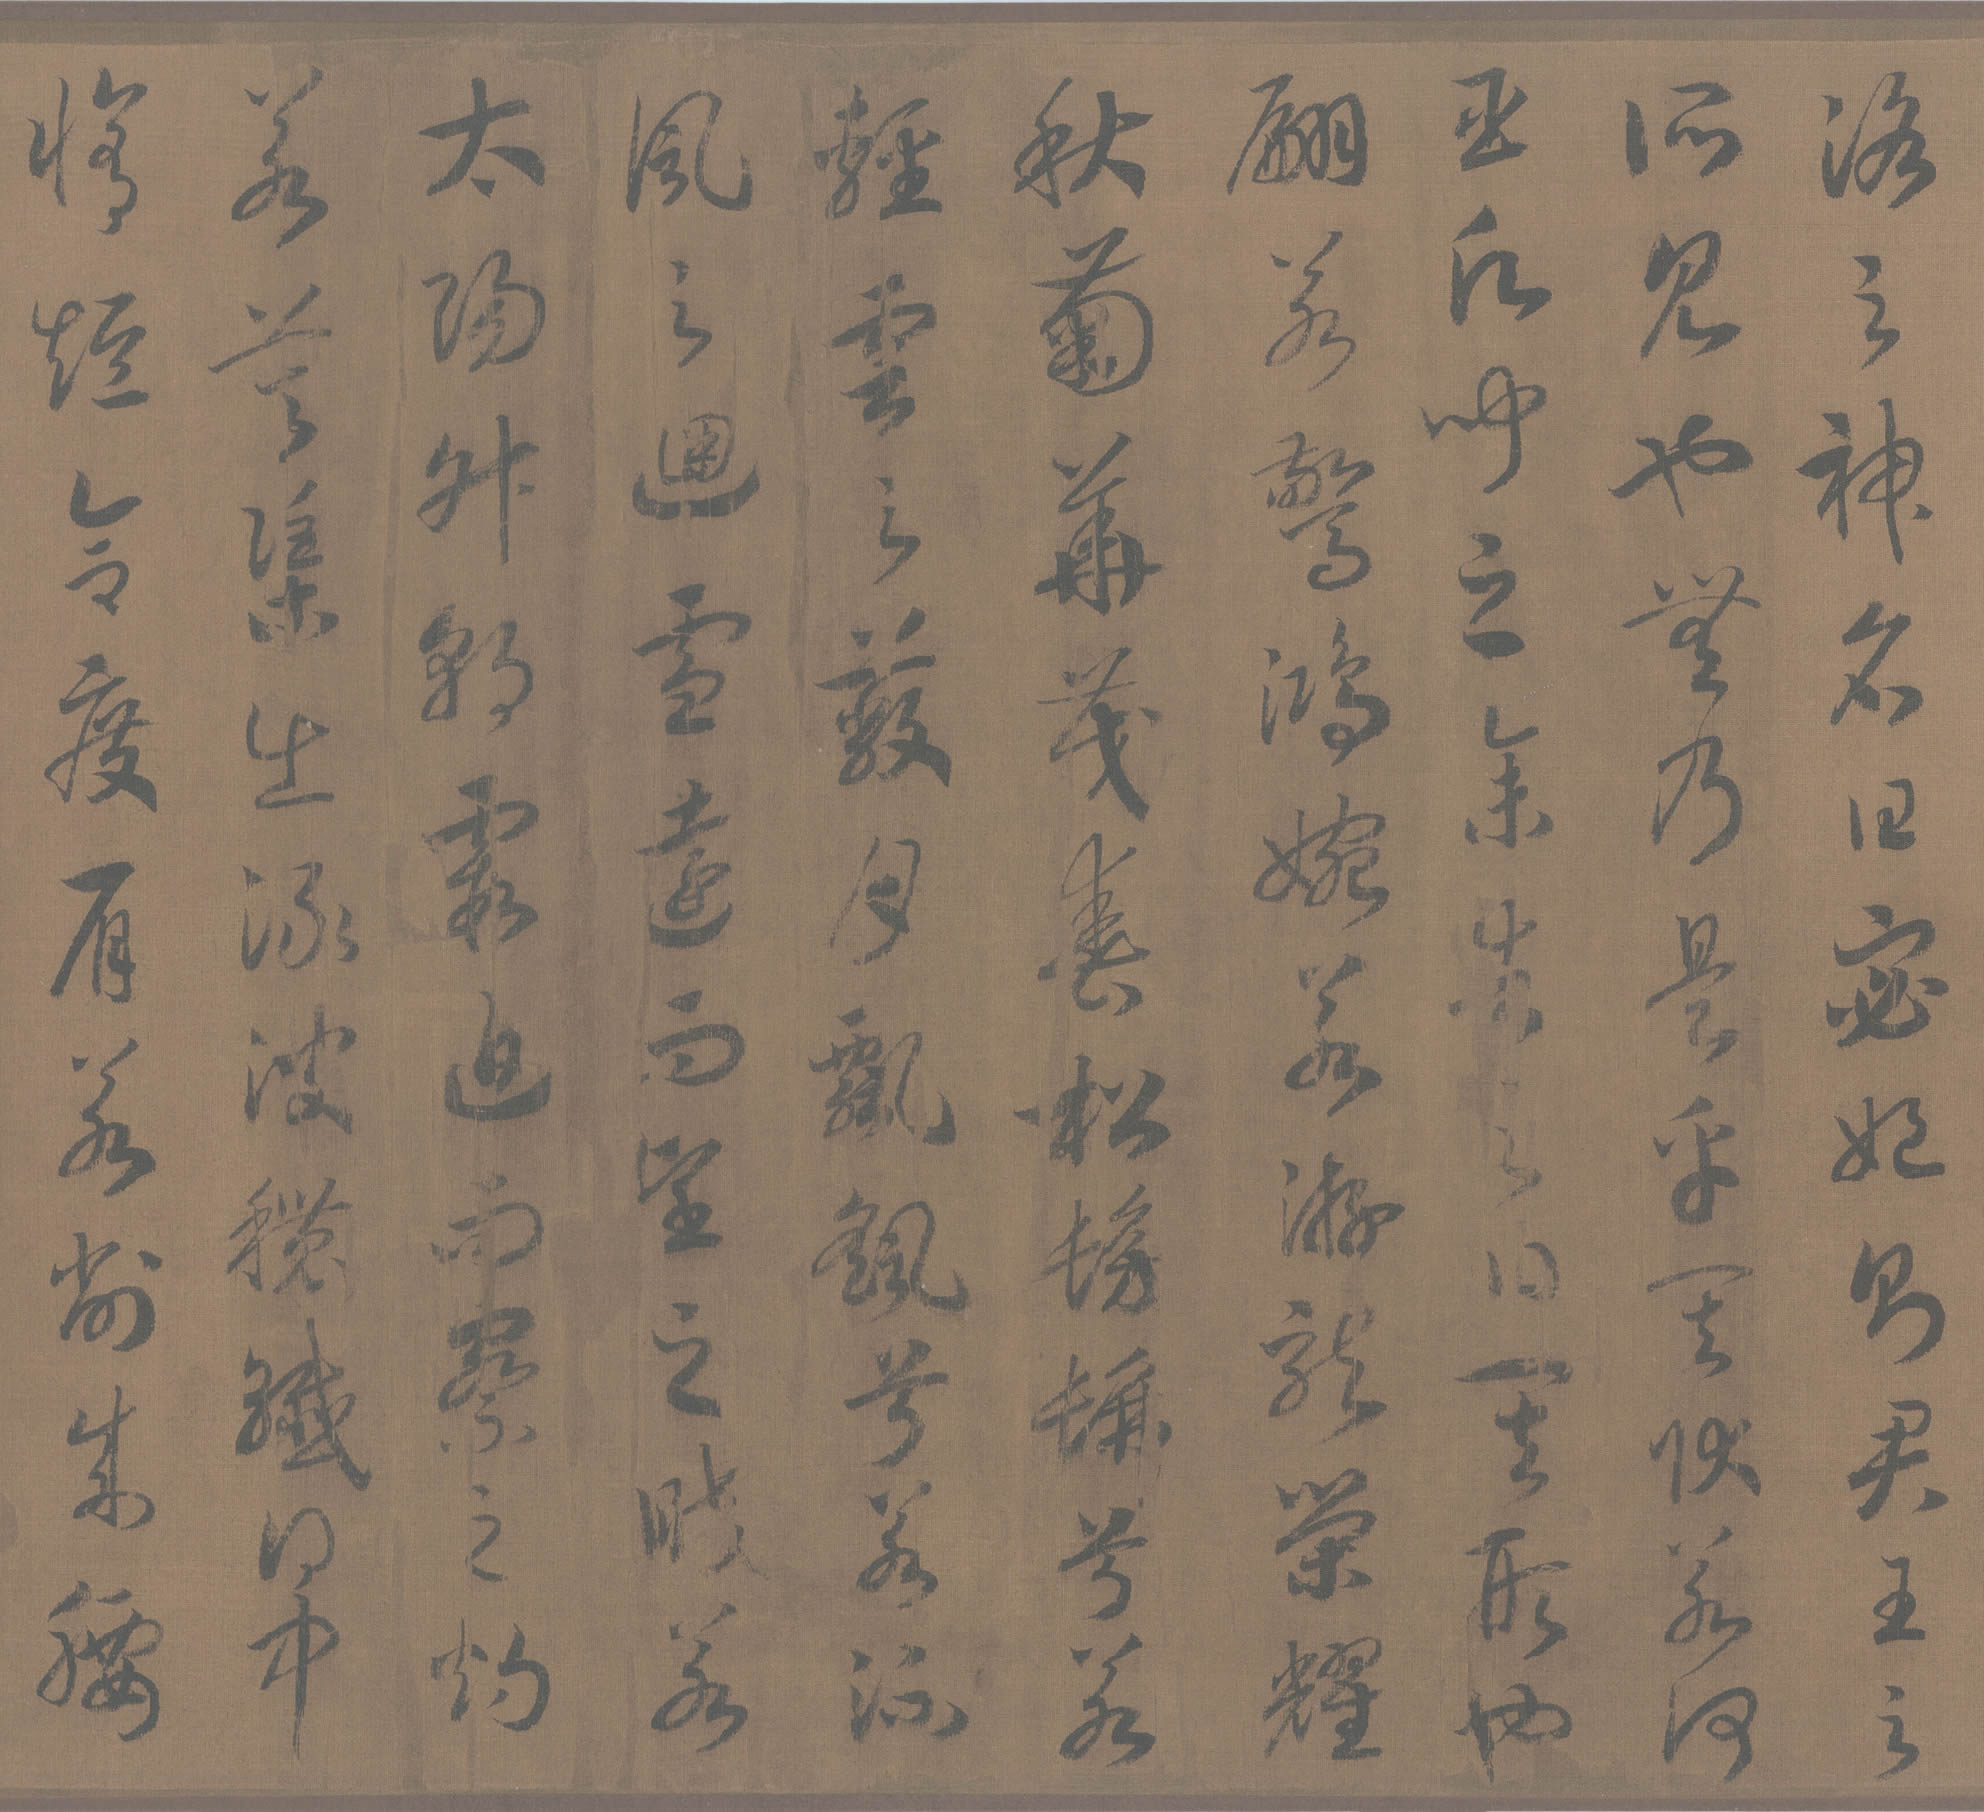 洛之神名曰宓妃則君王之
所見也無乃是乎其狀若何
臣願聞之余告之曰其形也
翩若驚鴻婉若游龍榮耀
秋菊華茂春松髣髴兮若
輕雲之蔽月飄颻兮若流
風之迴雪遠而望之皎若
太陽升朝霞迫而察之灼
若芙蕖出淥波穠纖得中
脩短合度肩若削成腰